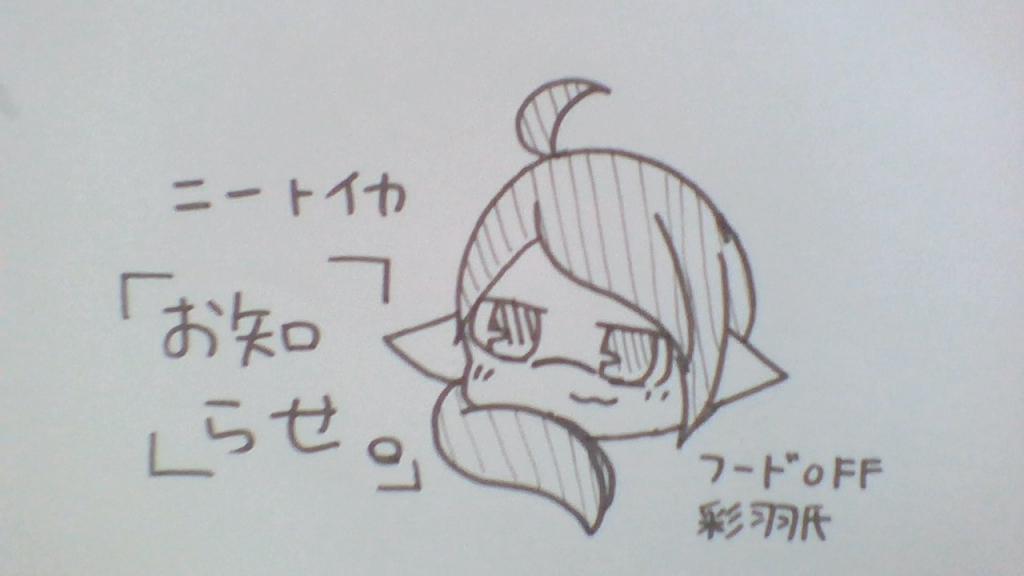 ニートイカ
「お知
らせ。」
フードOFF
彩羽氏